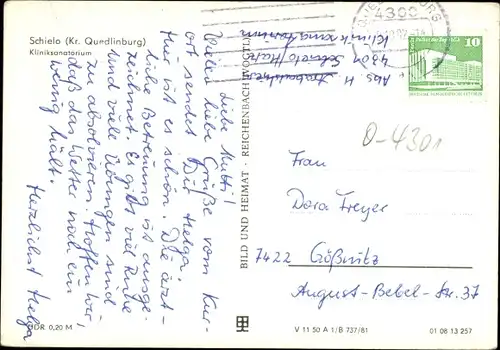 Schielo (Kr. Quedlinburg)
Kliniksanatorium
Liebe Mutti!
Viele liebe Grüße vom Kur-
ort sendet Dir Helga.
Hier ist es schön. Die ärzt-
liche Betreuung ist ausge-
zeichnet. Es gibt viel Ruhe
und viele Übungen sind
zu absolvieren. Hoffen wir,
daß das Wetter noch ein
wenig hält.
Herzlichst Helga
Abs. H.
Kliniksanatorium
4301 Schielo/Harz
BILD UND HEIMAT · REICHENBACH (VOGTL)
4300
10
O-4301
Frau
Dora Freyer
7422 Gößnitz
August-Bebel-Str. 37
DDR 0,20 M
V 11 50 A 1/B 737/81
01 08 13 257